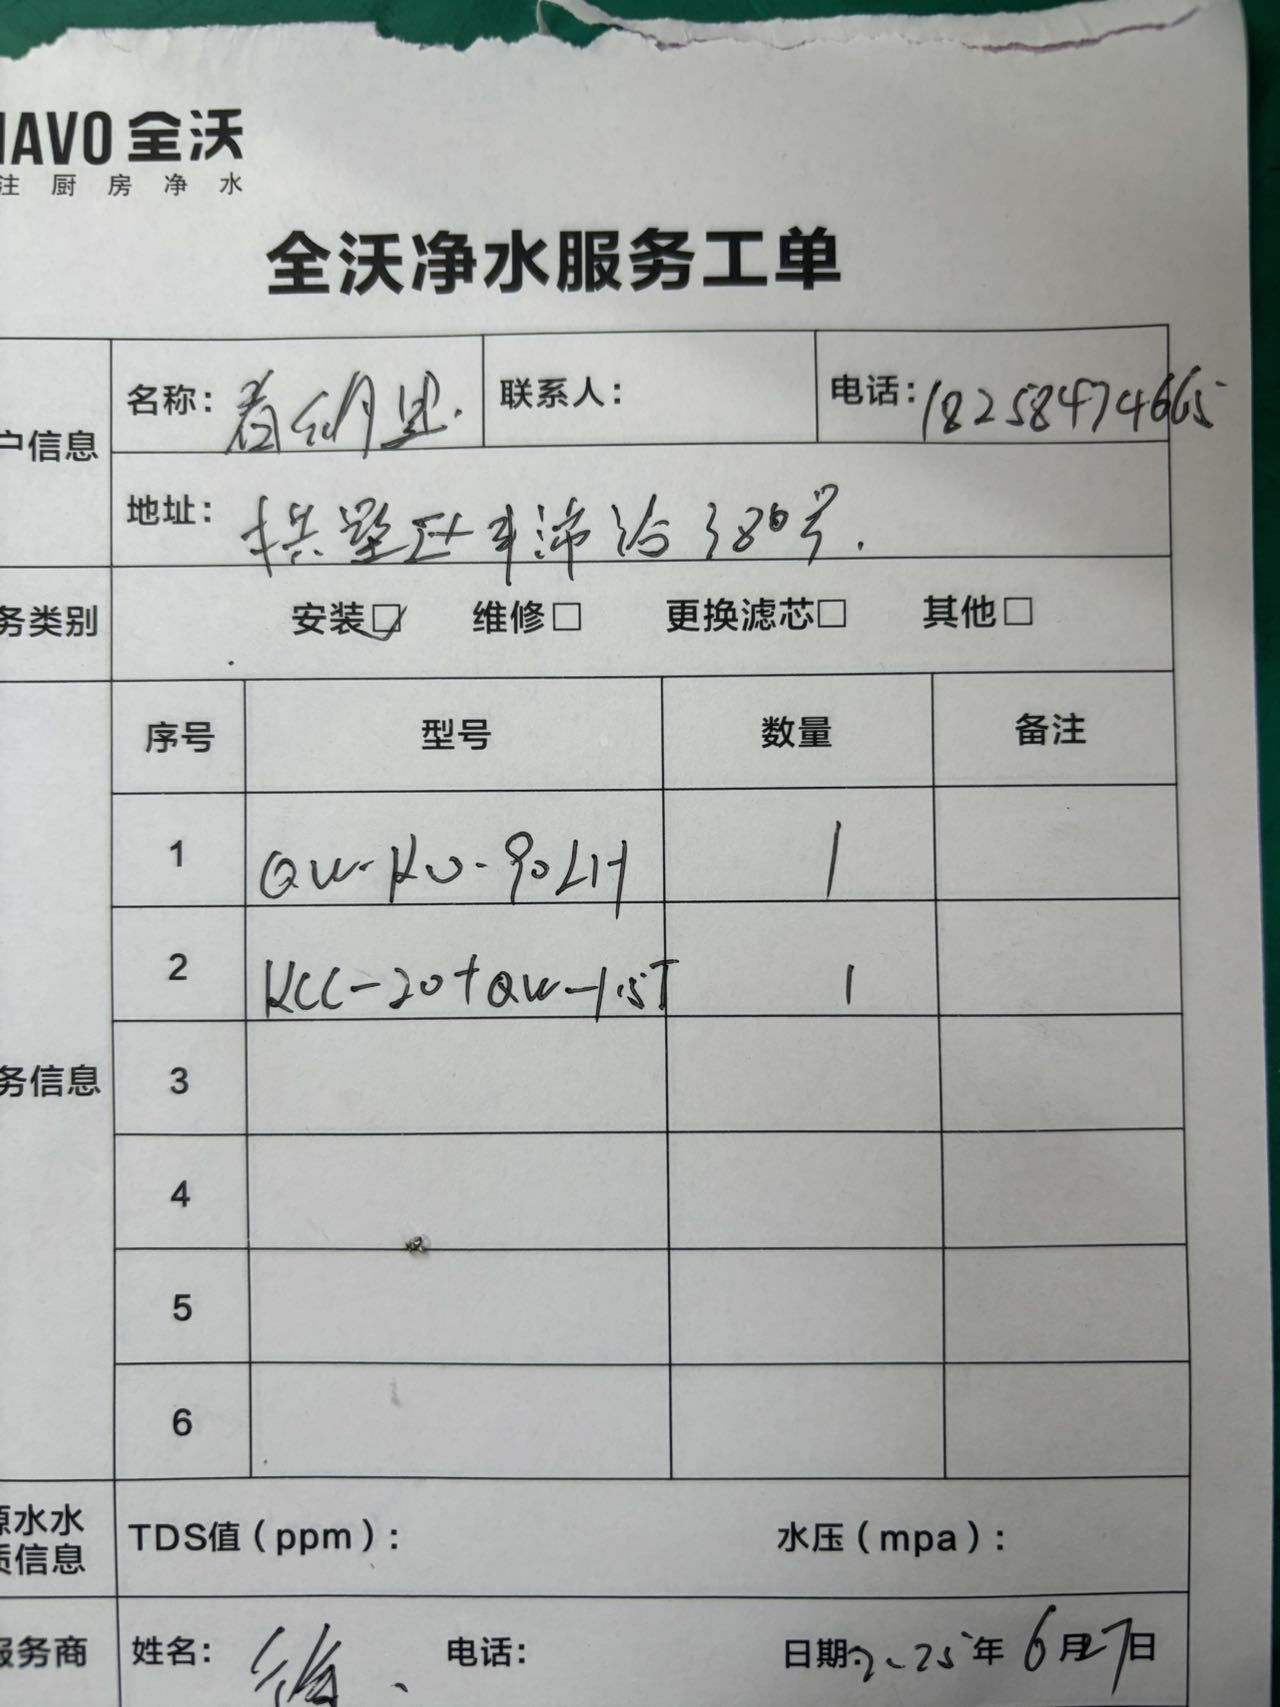 IAVO 全沃
注厨房净水
全沃净水服务工单
户信息
名称：
联系人：
电话：18258474665
地址：拱墅区丰沛治380号.
务类别
安装☑ 维修□ 更换滤芯□ 其他□
序号 型号 数量 备注
1 QW-RO-90LH 1
2 KCC-20+QW-1.5T 1
务信息
3
4
5
6
源水水
质信息
TDS值（ppm）：
水压（mpa）：
服务商
姓名：徐.
电话：
日期：2025年6月27日